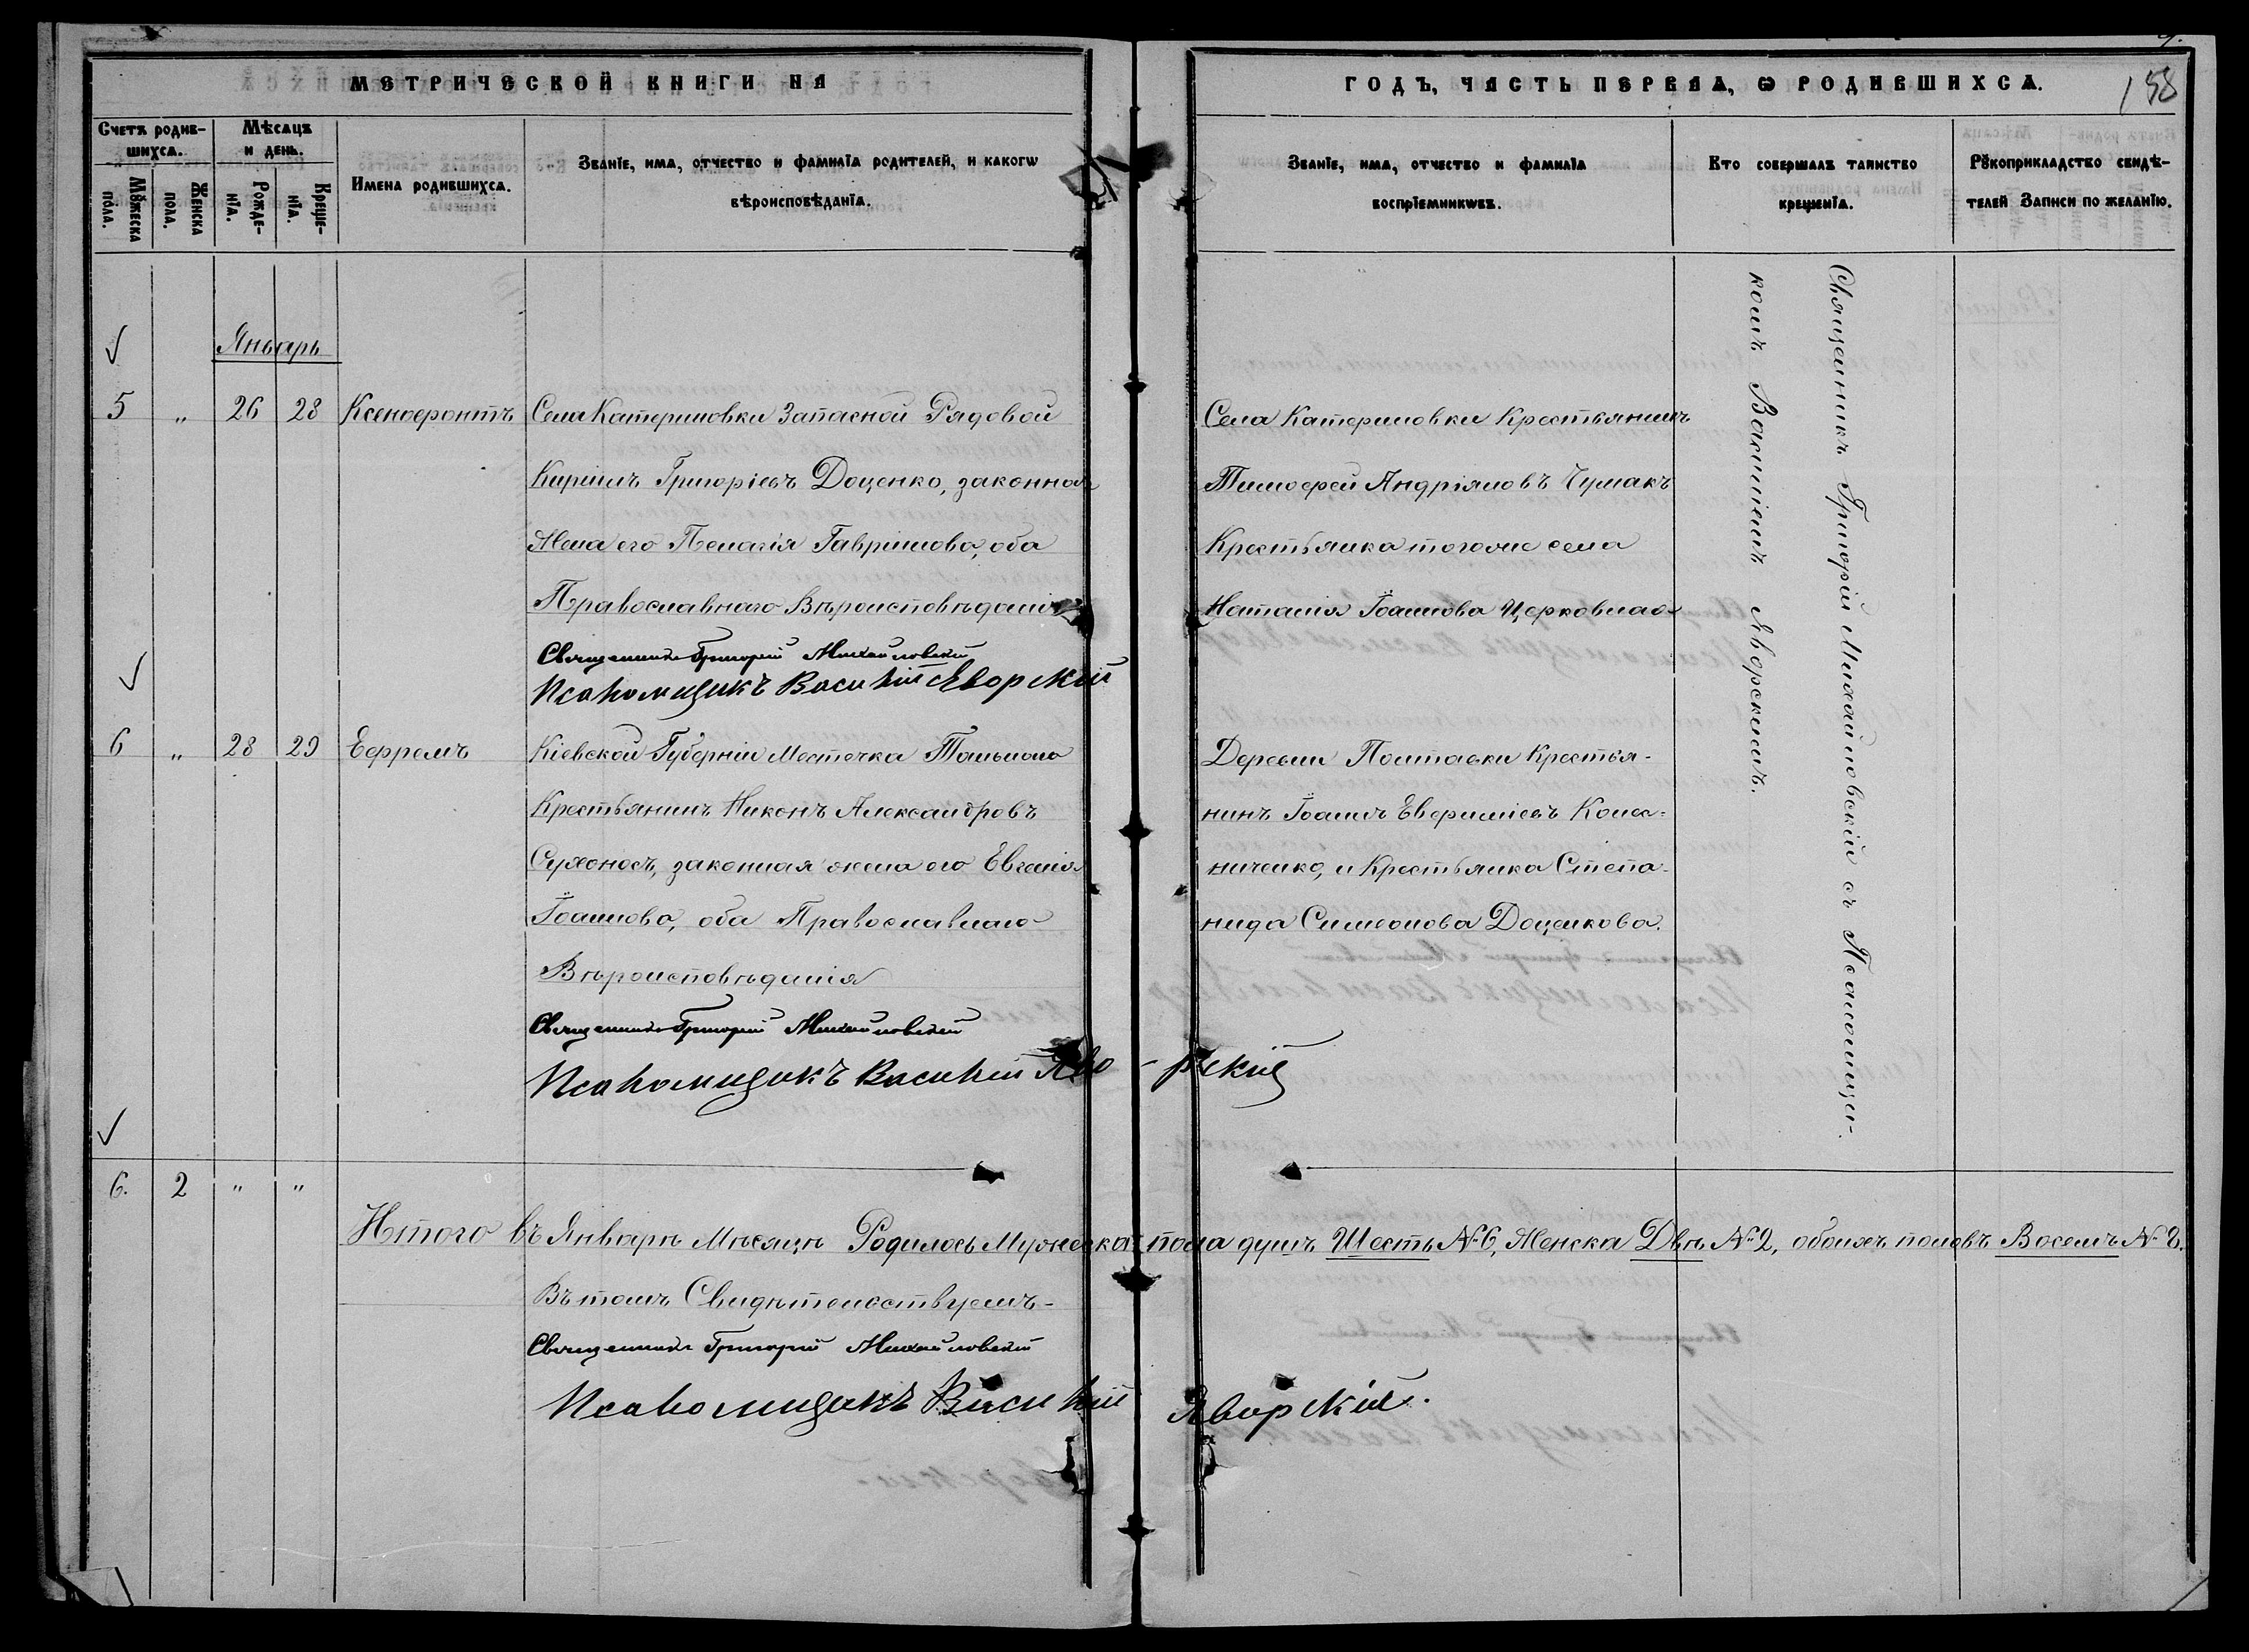 МЕТРИЧЕСКОЙ КНИГИ НА
ГОДЪ, ЧАСТЬ ПЕРВАѦ, Ѡ РОДИВШИХСѦ.
158
Счетъ родив-
шихсѧ.
Мѣсѧцъ
и день.
Мꙋжеска
пола.
Женска
пола.
Рожде-
нїѧ.
Креще-
нїѧ.
Имена родившихсѧ.
Званїе, имѧ, отчество и фамилїѧ родителей, и какогѡ
вѣроисповѣданїѧ.
Званїе, имѧ, отчество и фамилїѧ
воспрїемникѡвъ.
Кто совершалъ таинство
крещенїѧ.
Рꙋкоприкладство свидѣ-
телей Записи по желанїю.
Январь
5 „ 26 28 Ксенофонтъ
Села Катериновки Запасной Рядовой
Кирилъ Григоріевъ Доценко, законная
Жена его Пелагія Гавриилова, оба
Православнаго Вѣроисповѣданія
Священникъ Григорій Михайловскій
Псаломщикъ Василій Яворскій
Села Катериновки Крестьянинъ
Тимофей Андріяновъ Чумакъ
Крестьянка того же села
Наталія Іоаннова Церковная
6 „ 28 29 Ефремъ
Кіевской Губерніи Местечка Тального
Крестьянинъ Никонъ Александровъ
Сухоносъ, законная жена его Евгенія
Іоаннова, оба Православнаго
Вѣроисповѣданія
Священникъ Григорій Михайловскій
Псаломщикъ Василій Яво-рскій
Деревни Полтавки Крестья-
нинъ Іоаннъ Евфиміевъ
ниченко, и Крестьянка Степа-
нида Симеонова Доценкова.
Священникъ Григорій Михайловскій съ Псаломщи-
комъ Василіемъ Яворскимъ.
6. 2 „ „
Итого въ Январѣ Мѣсяцѣ Родилось Мужеска пола душъ Шесть №6, Женска Двѣ №2, обоихъ половъ Восемъ №8.
Въ томъ Свидѣтельствуемъ-
Священникъ Григорій Михайловскій
Псаломщикъ Василій Яворскій.